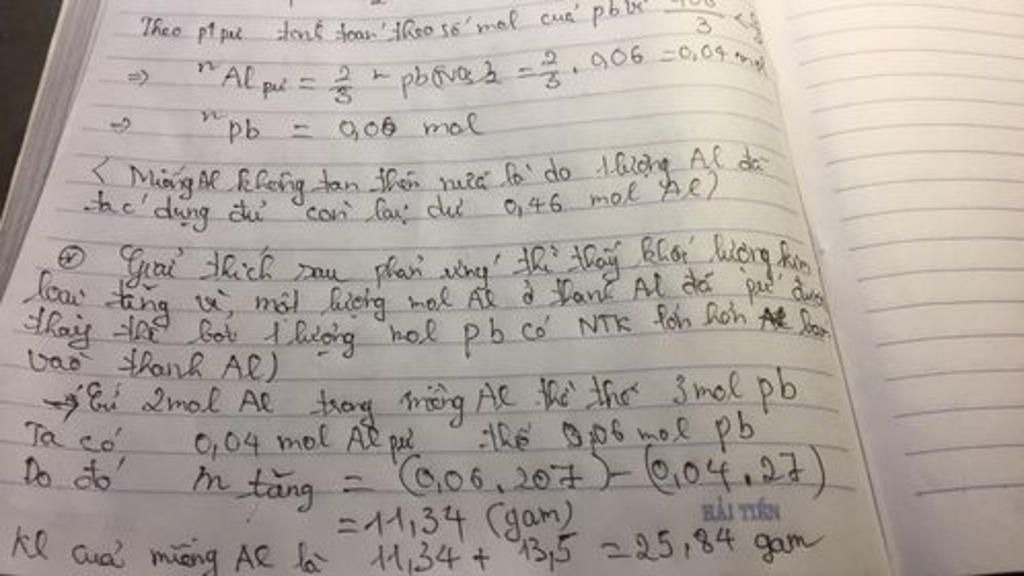 Theo pt pư tính toán theo số mol của pb vì 3 <
=> nAl pư = 2/3 n pb(NO3)2 = 2/3 . 0,06 = 0,04 mol
=> n pb = 0,06 mol
( Miếng Al không tan thêm nữa là do 1 lượng Al đã
tác dụng đủ còn lại dư 0,46 mol Al)
* Giải thích sau phản ứng thì thấy khối lượng kim
loại tăng vì, một lượng mol Al ở thanh Al đã pư được
thay thế bởi 1 lượng mol pb có NTK lớn hơn
vào thanh Al)
-> Cứ 2mol Al trong miếng Al thì thế 3mol pb
Ta có 0,04 mol Al pư thế 0,06 mol pb
Do đó m tăng = (0,06.207) - (0,04.27)
= 11,34 (gam)
HẢI TIẾN
Kl của miếng Al là 11,34 + 13,5 = 25,84 gam